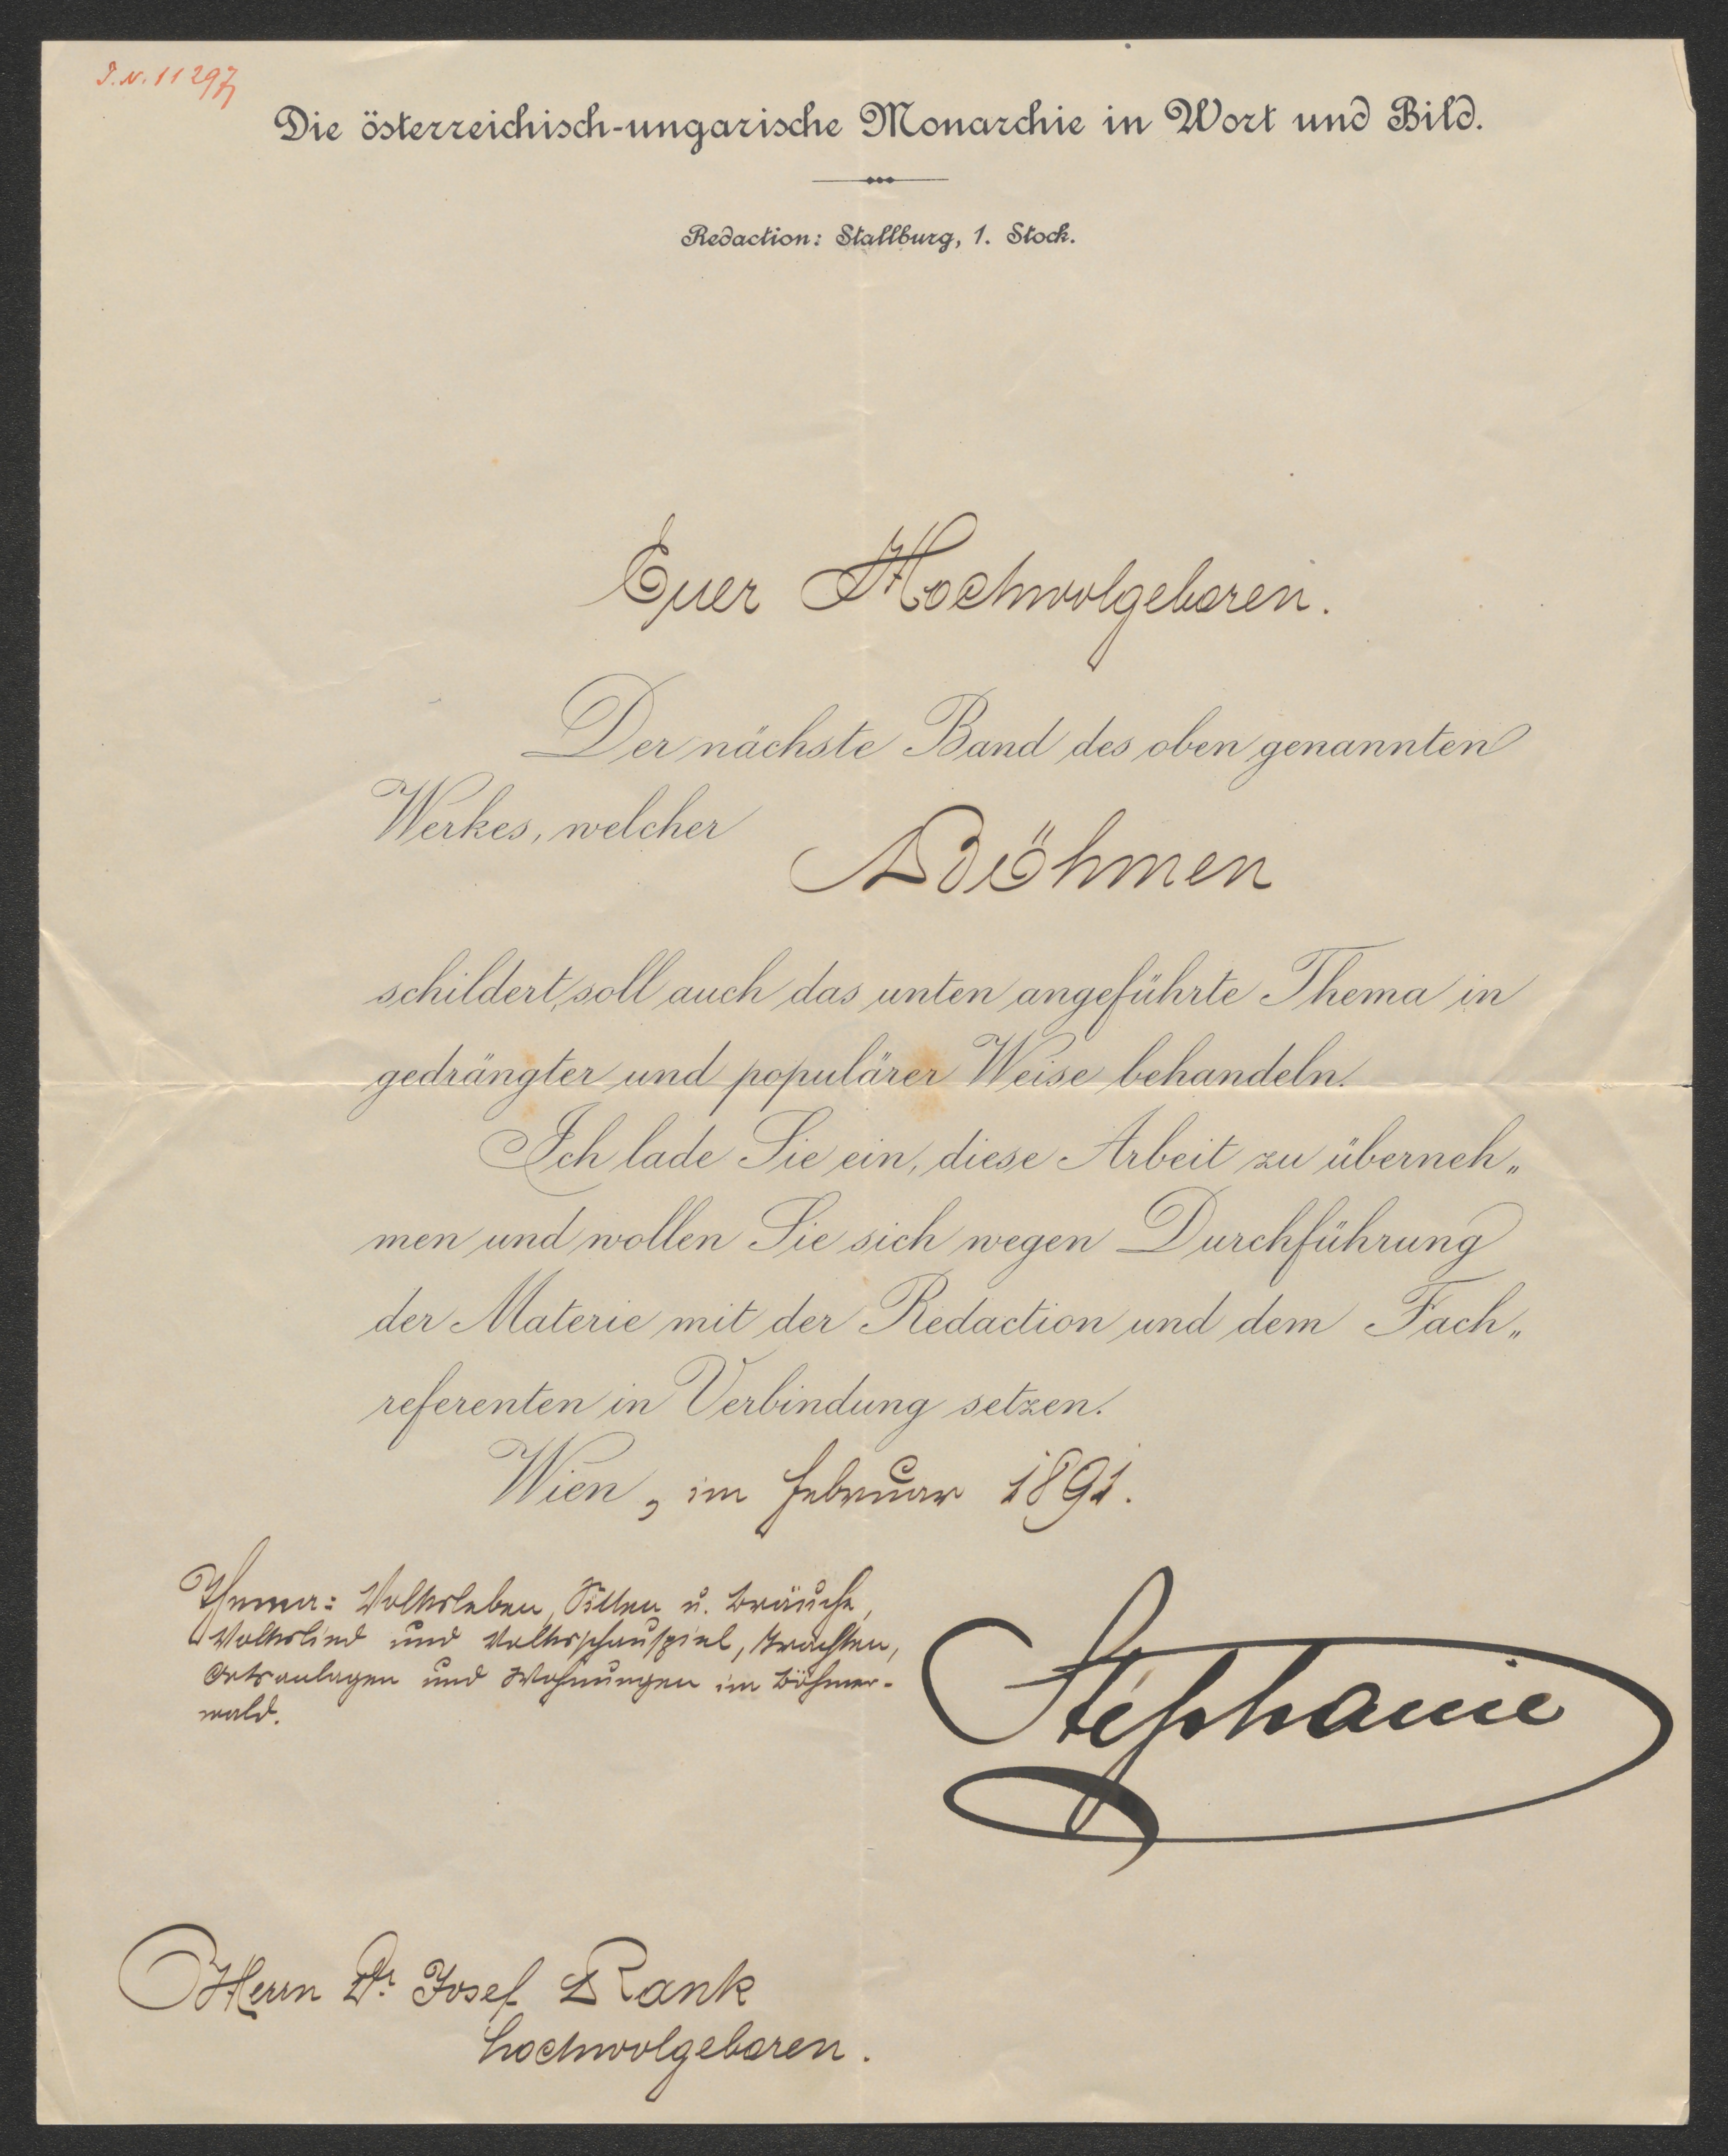 J.N. 11297
Die österreichisch-ungarische Monarchie in Wort und Bild.
Redaction: Stallburg, 1. Stock.
Euer Hochwolgeboren.
Der nächste Band des oben genannten
Werkes, welcher
Böhmen
schildert, soll auch das unten angeführte Thema in
gedrängter und populärer Weise behandeln.
Ich lade Sie ein, diese Arbeit zu überneh„
men und wollen Sie sich wegen Durchführung
der Materie mit der Redaction und dem Fach„
referenten in Verbindung setzen.
Wien, im Februar 1891.
Thema: Volksleben, Sitten u. Bräuche,
Volkslied und Volksschauspiel, Trachten,
Ortsanlagen und Wohnungen im Böhmer-
wald.
Stéphanie
Herrn Dr Josef Rank
Hochwolgeboren.